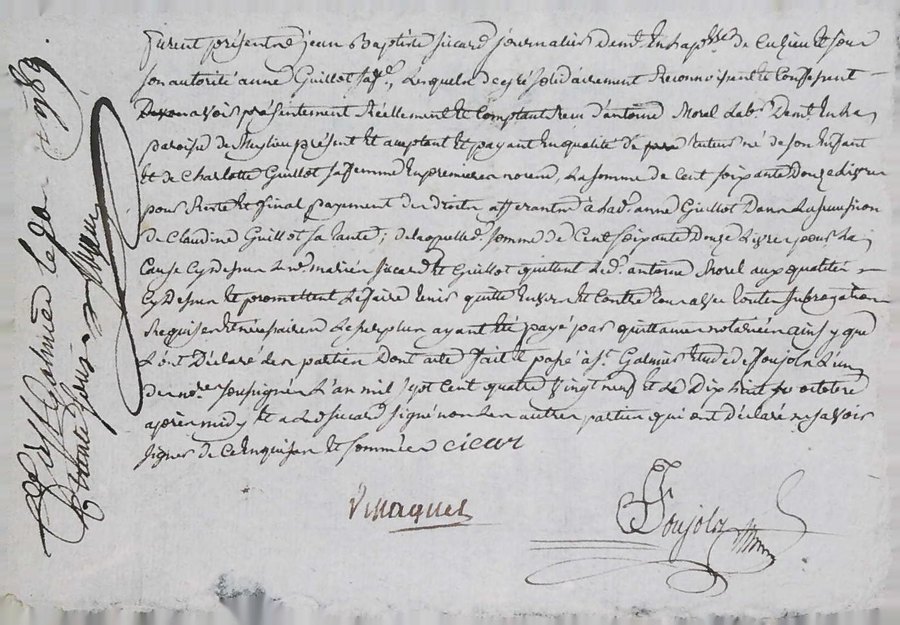 Furent présents jean Baptiste Sicard journalier demt. en la psse de Cuzieu et sous
son autorité anne Guillot sa fe., lesquels de gré solidairement Reconnoissent et Confessent
avoir présentement Réellement et Comptant Reçu d'antoine Morel Lab. Demt. en la
paroisse de Meylieu présent et acceptant et payant en qualité de tuteur né de son Enfant
et de Charlotte Guillot sa femme en premieres noces, La somme de Cent soixante Douze Livres
pour Reste et final payement des droits afferants à Lad. anne Guillot Dans La succession
de Claudine Guillot sa tante; de laquelle d. somme de Cent soixante Douze Livres pour La
Cause Cy Dessus Lesd. mariés Sicard et Guillot quittent Led. antoine Morel aux qualités
Cy Dessus et promettent Le faire tenir quitte Envers et Contre tous avec toutes subrogations
Requises et nécessaires Le surplus ayant été payé par quittances notariées ainsy que
L'ont Déclaré Les parties Dont acte fait et passé à St. Galmier Etude de Soujolz L'un
des nores. soussignés L'an mil sept Cent quatre vingt neuf et Le Dix huit octobre
après midy et a Led. Sicard signé non Les autres parties qui ont Déclaré ne savoir
signer de Ce Enquises et sommées cicar
Villaquet
Soujolz
Rée. à St. Galmier le 30 8bre 1789.
R. trente sous